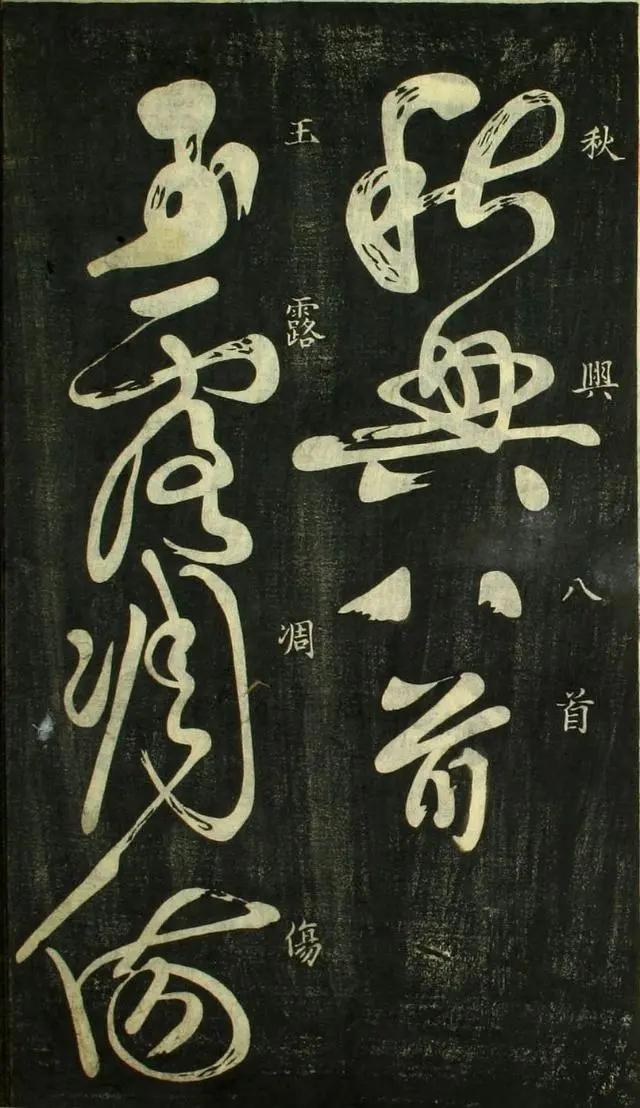 秋興八首
秋興八首
玉露凋傷
玉露凋傷